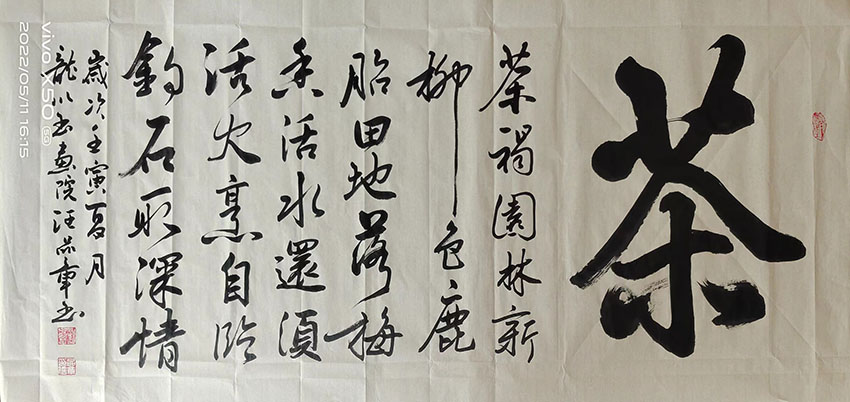 茶
茶褐園林新
柳色鹿
胎田地落梅
香活水還須
活火烹自臨
釣石取深情
歲次壬寅夏月
龍川书画院汪章书
vivo X50 5G
2022/05/11 16:15